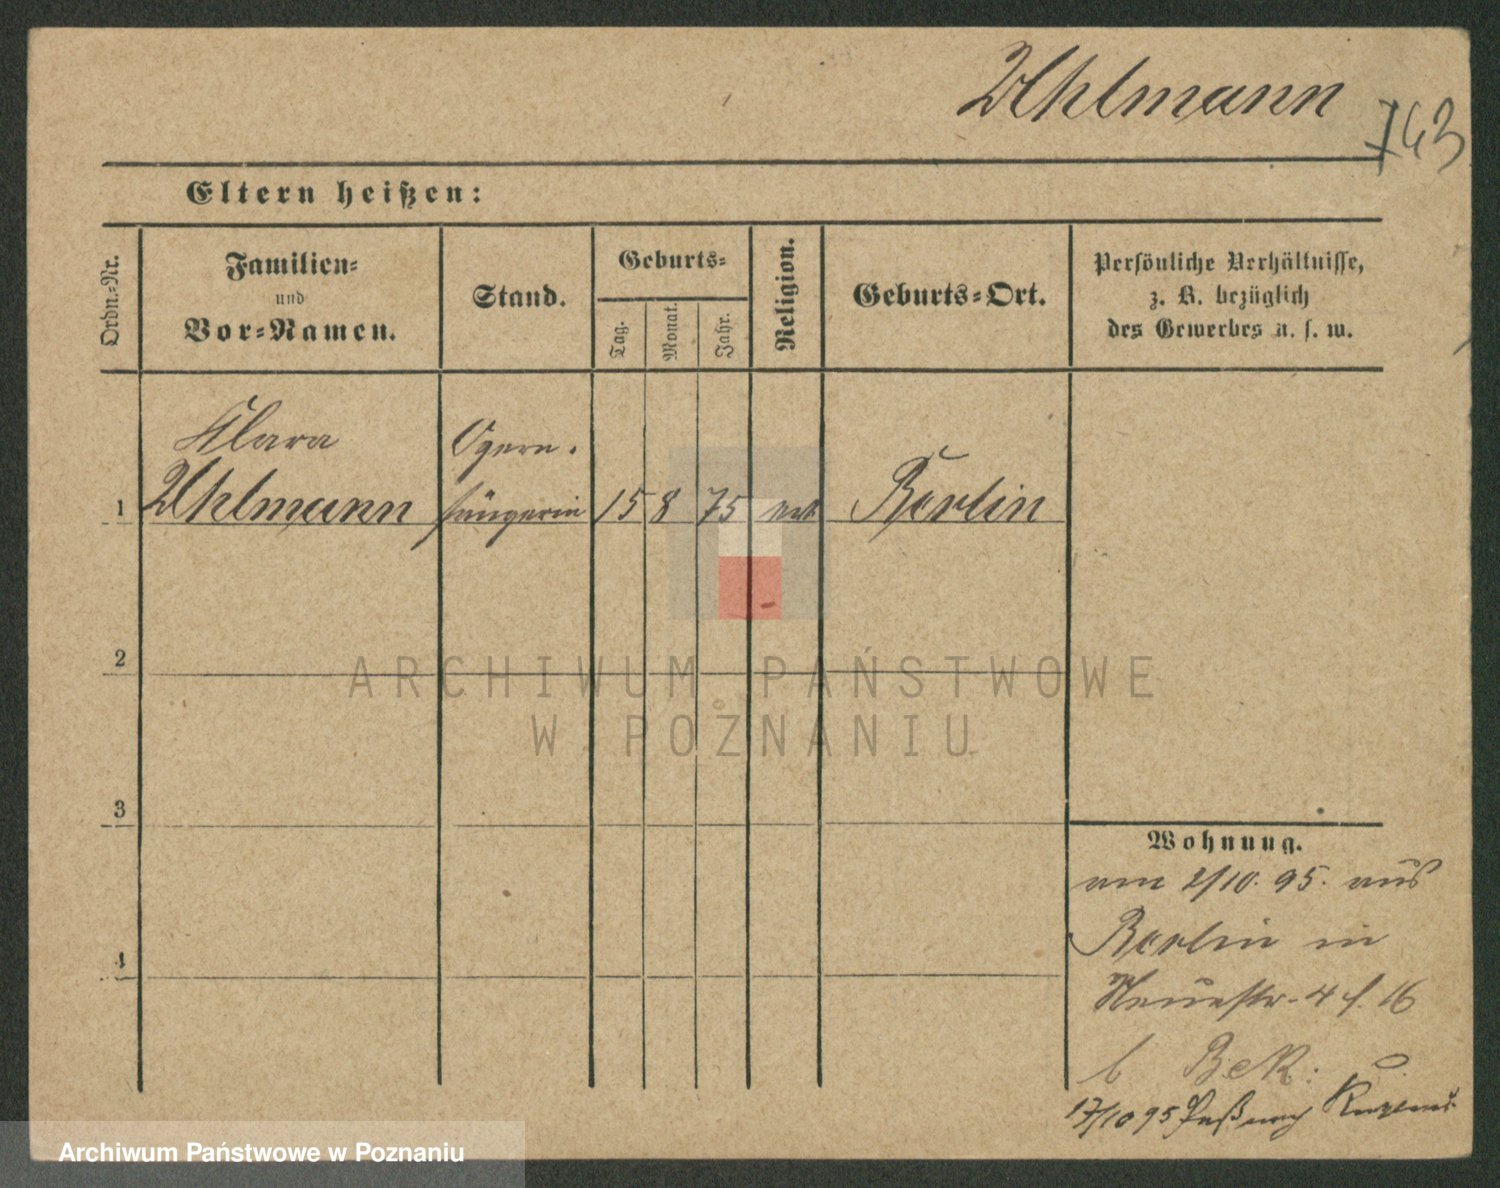 Uhlmann
743
Eltern heißen:
Ordn.-Nr.
Familien-
und
Vor-Namen.
Stand.
Geburts-
Tag.
Monat.
Jahr.
Religion.
Geburts-Ort.
Persönliche Verhältnisse,
z. B. bezüglich
des Gewerbes u. s. w.
Klara
Uhlmann
Opern-
sängerin
1
15 8 75
Berlin
2
3
4
ARCHIWUM PAŃSTWOWE
W POZNANIU
Wohnung.
am 2/10. 95. aus
Berlin in
Neuestr. 4 f. 16
b
17/10 95
Archiwum Państwowe w Poznaniu